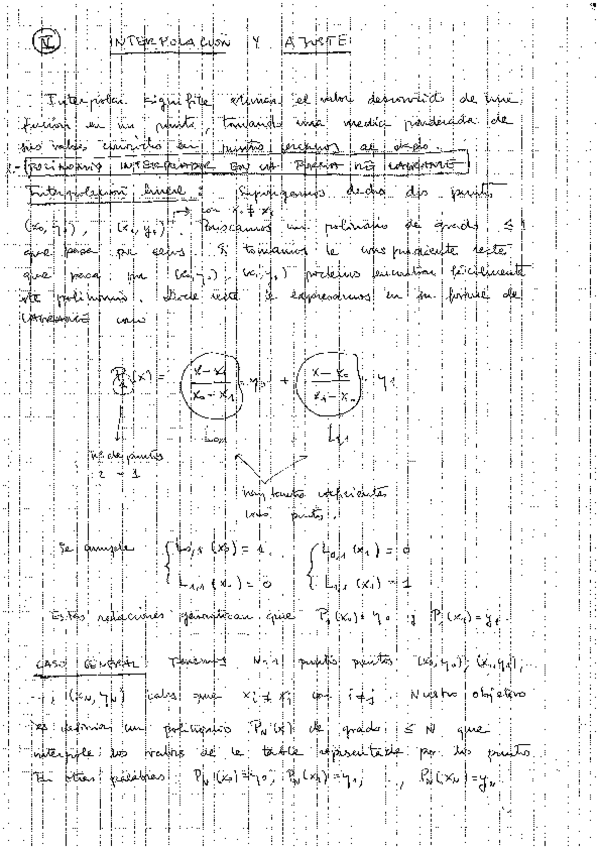 IV INTERPOLACION Y AJUSTE
Interpolar significa estimar el valor desconocido de una
función en un punto, tomando una media ponderada de
sus valores conocidos en puntos cercanos al dado.
POLINOMIO INTERPOLADOR EN LA FORMA DE LAGRANGE
Interpolación lineal: Supongamos dados dos puntos
→ con x₀ ≠ x₁
(x₀, y₀), (x₁, y₁). Buscamos un polinomio de grado ≤ 1
que pasa por ellos. Si tomamos la correspondiente recta
que pasa por (x₀, y₀), (x₁, y₁) podemos encontrar fácilmente
este polinomio. Dicha recta la expresamos en su forma de
LAGRANGE como
P₁(x) = x - x₁ / x₀ - x₁ · y₀ + x - x₀ / x₁ - x₀ · y₁
L₀,₁ L₁,₁
nº de puntos
2 - 1
hay tantos coeficientes
como puntos.
Se cumple { L₀,₁(x₀) = 1 { L₀,₁(x₁) = 0
L₁,₁(x₀) = 0 L₁,₁(x₁) = 1
Estas relaciones que P₁(x₀) = y₀ y P₁(x₁) = y₁
CASO GENERAL: Tenemos N+1 puntos (x₀, y₀), (x₁, y₁),
..., (x_N, y_N) tales que x_i ≠ x_j con i ≠ j. Nuestro objetivo
es definir un polinomio P_N(x) de grado ≤ N que
interpole los valores de la tabla representada por los puntos
En otras palabras P_N(x₀) = y₀, P_N(x₁) = y₁, ..., P_N(x_N) = y_N